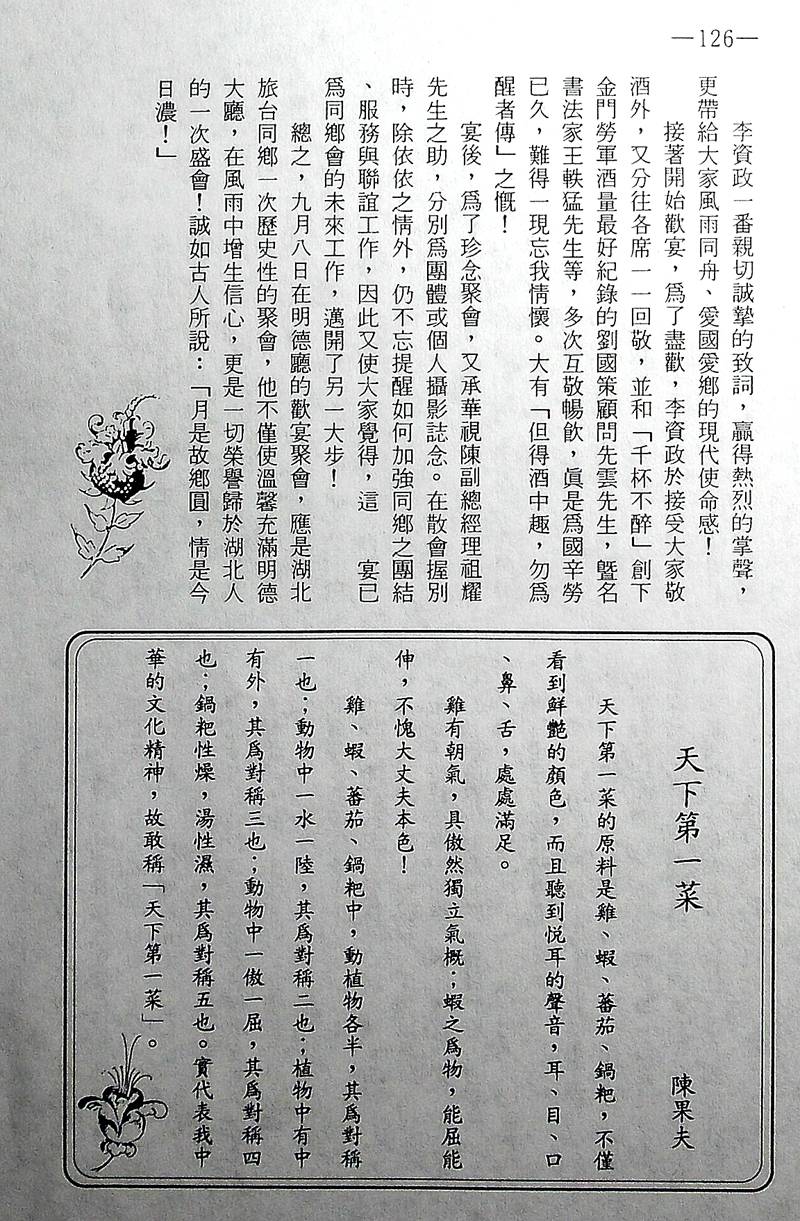 —126—
李資政一番親切誠摯的致詞，贏得熱烈的掌聲，
更帶給大家風雨同舟、愛國愛鄉的現代使命感！
接著開始歡宴，為了盡歡，李資政於接受大家敬
酒外，又分往各席一一回敬，並和「千杯不醉」創下
金門勞軍酒量最好紀錄的劉國策顧問先雲先生，暨名
書法家王軼猛先生等，多次互敬暢飲，眞是為國辛勞
已久，難得一現忘我情懷。大有「但得酒中趣，勿為
醒者傳」之慨！
宴後，為了珍念聚會，又承華視陳副總經理祖耀
先生之助，分別為團體或個人攝影誌念。在散會握別
時，除依依之情外，仍不忘提醒如何加強同鄉之團結
、服務與聯誼工作，因此又使大家覺得，這　宴已
為同鄉會的未來工作，邁開了另一大步！
總之，九月八日在明德廳的歡宴聚會，應是湖北
旅台同鄉一次歷史性的聚會，他不僅使溫馨充滿明德
大廳，在風雨中增生信心，更是一切榮譽歸於湖北人
的一次盛會！誠如古人所說：「月是故鄉圓，情是今
日濃！」
天下第一菜　陳果夫
天下第一菜的原料是雞、蝦、蕃茄、鍋粑，不僅
看到鮮艷的顏色，而且聽到悦耳的聲音，耳、目、口
、鼻、舌，處處滿足。
雞有朝氣，具傲然獨立氣概；蝦之為物，能屈能
伸，不愧大丈夫本色！
雞、蝦、蕃茄、鍋粑中，動植物各半，其為對稱
一也；動物中一水一陸，其為對稱二也；植物中有中
有外，其為對稱三也；動物中一傲一屈，其為對稱四
也；鍋粑性燥，湯性濕，其為對稱五也。實代表我中
華的文化精神，故敢稱「天下第一菜」。